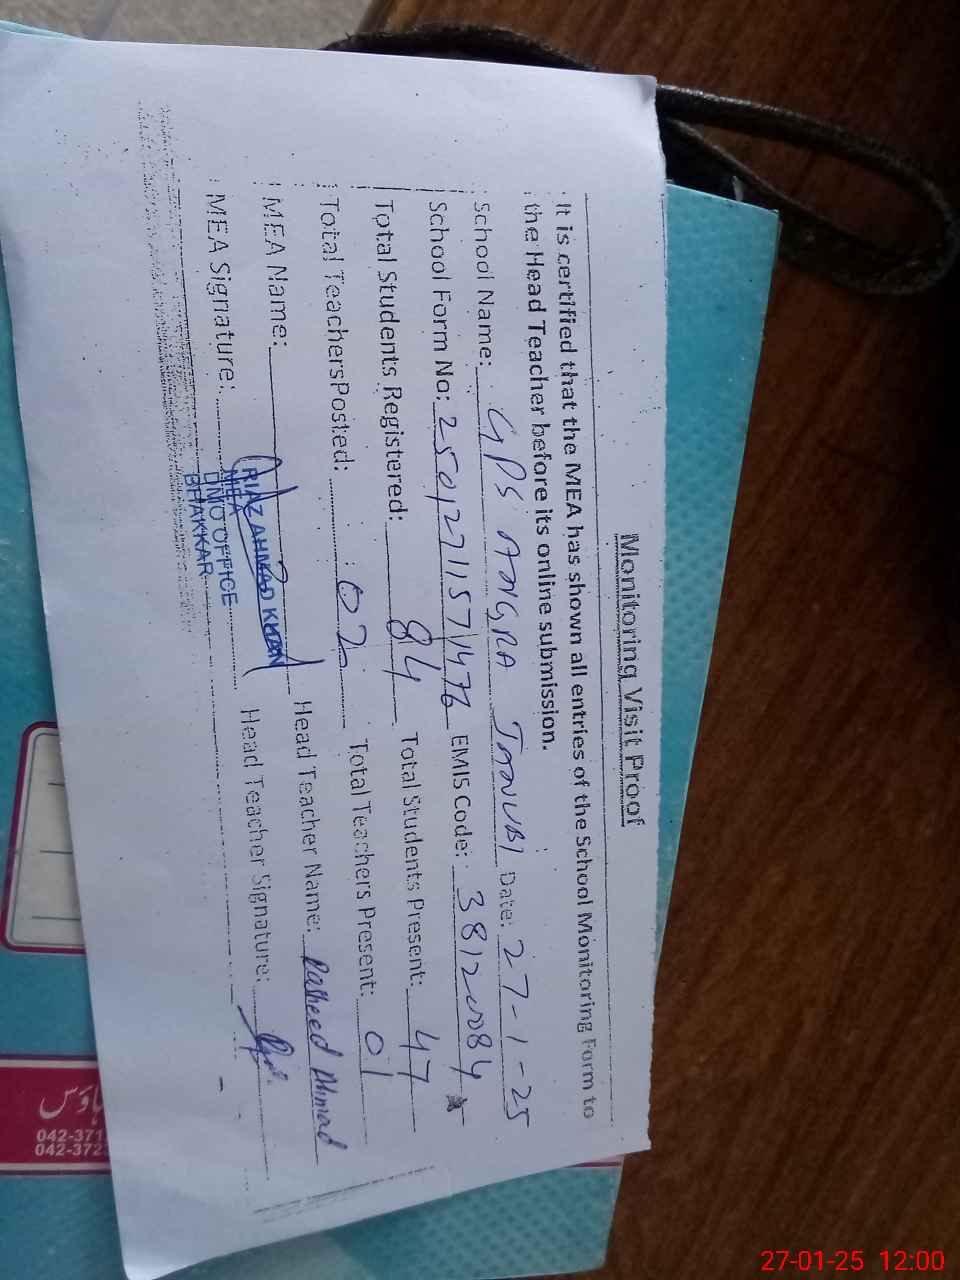 Monitoring Visit Proof
It is certified that the MEA has shown all entries of the School Monitoring Form to
the Head Teacher before its online submission.
School Name: GPS ANGRA JANUBI Date: 27-1-25
School Form No: EMIS Code: 38120084
Total Students Registered: 84 Total Students Present: 47
Total TeachersPosted: 02 Total Teachers Present: 01
MEA Name: Head Teacher Name: Rasheed Ahmad
MEA Signature: Head Teacher Signature:
RIAZ AHMAD KHAN
MEA
DMO OFFICE
BHAKKAR
ہاؤس
042-371
042-372
27-01-25 12:00